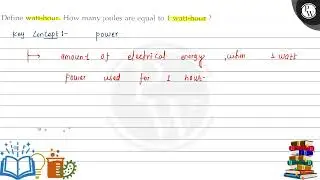 Define watt-hour. How many joules are equal to 1 watt-hour ?
Key Concept :- power
↦ amount of electrical energy , when 1 watt
power used for 1 hour.